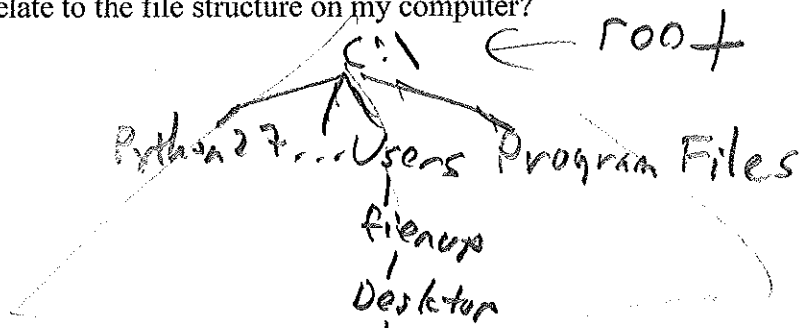 elate to the file structure on my computer?
C:\ ← root
Python27 ... Users Program Files
fienup
Desktop